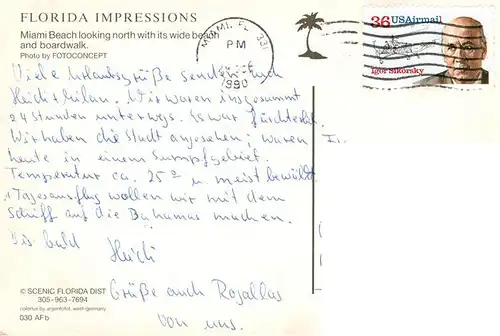 FLORIDA IMPRESSIONS
Miami Beach looking north with its wide beach
and boardwalk.
Photo by FOTOCONCEPT
MIAMI, FL 331
PM
1990
36 USAirmail
Igor Sikorsky
Viele Urlaubsgrüße senden euch
Heidi + Milan. Wir waren insgesamt
24 Stunden unterwegs. Es war fürchterlich.
Wir haben die Stadt angesehen; waren
heute in einem Sumpfgebiet.
Temperatur ca. 25° u. meist bewölkt
1 Tagesausflug wollen wir mit dem
Schiff auf die Bahamas machen.
Bis bald Heidi
Grüße auch Rosallas
von uns.
© SCENIC FLORIDA DIST
305-963-7694
colorlux by argentofot, west-germany
030 AFb